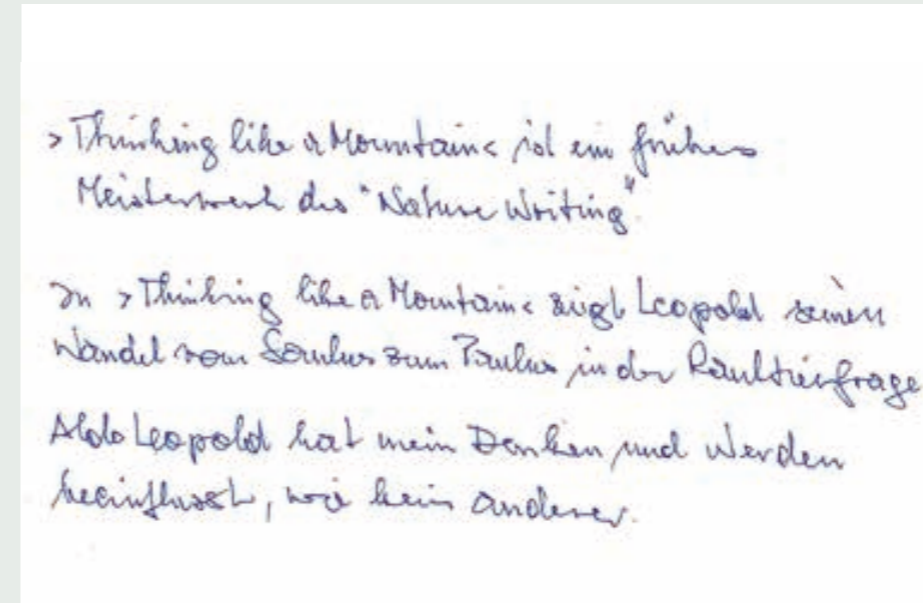 >Thinking like a Mountain< ist ein frühes
Meisterwerk des "Nature Writing".
In >Thinking like a Mountain< zeigt Leopold seinen
Wandel vom Saulus zum Paulus in der Raubtierfrage
Aldo Leopold hat mein Denken und Werden
beeinflusst, wie kein anderer.